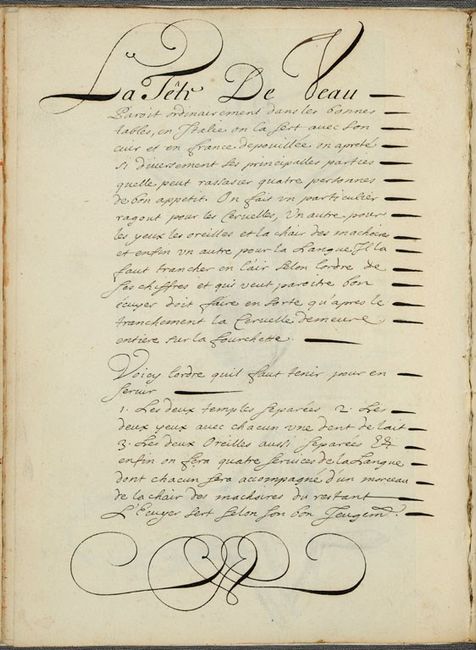 La Tête De Veau
Paroit ordinairement dans les bonnes
tables, en Italie on la sert avec son
cuir et en france depouillée on apreté
si diversement ses principalles parties
quelle peut rassasier quatre personnes
de bon appetit. On fait un particulier
ragout pour les Cervelles, Un autre pour
les yeux les oreilles et la chair des machoires
et enfin un autre pour la Langue Il la
faut trancher en l'air selon lordre de
ses chiffres et qui veut paroitre bon
ecuyer doit faire en sorte qu'apres le
tranchement la Cervelle demeure
entiere sur la fourchette
Voicy lordre quil faut tenir pour en
servir
1. Les deux temples separées 2. Les
deux yeux avec chacun une dent de lait
3. Les deux Oreilles aussi separées Et
enfin on fera quatre services de la Langue
dont chacun sera accompagné d'un morceau
de la chair des machoires du restant
L'Ecuyer sert selon son bon Jeugemt.